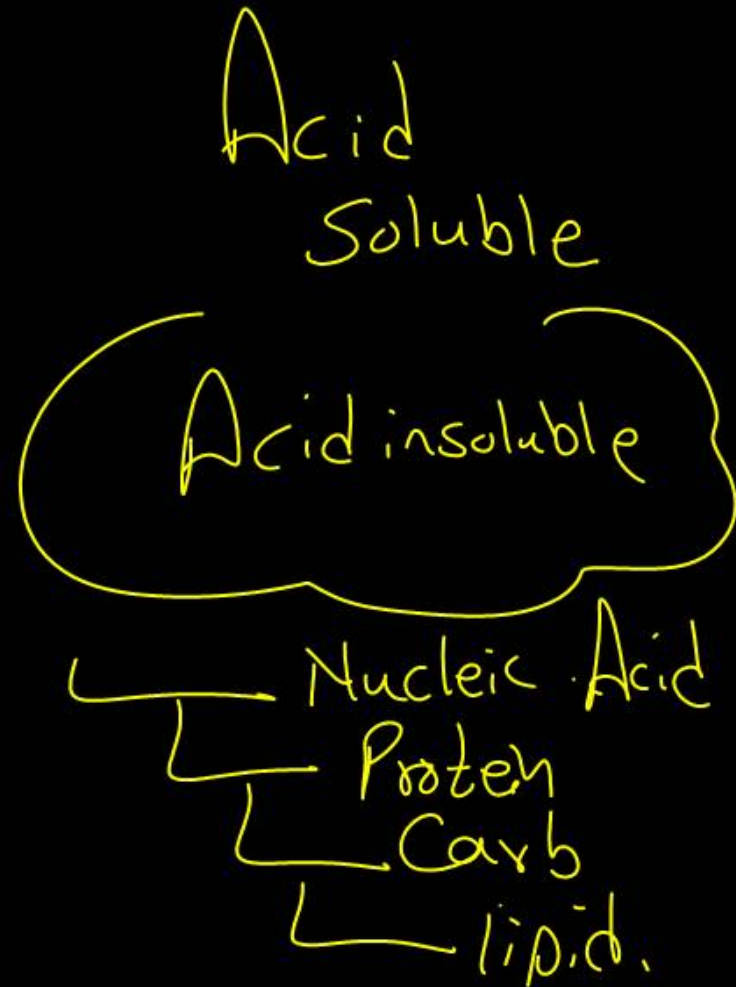 Acid
Soluble
Acid insoluble
Nucleic Acid
Protein
Carb
lipid.